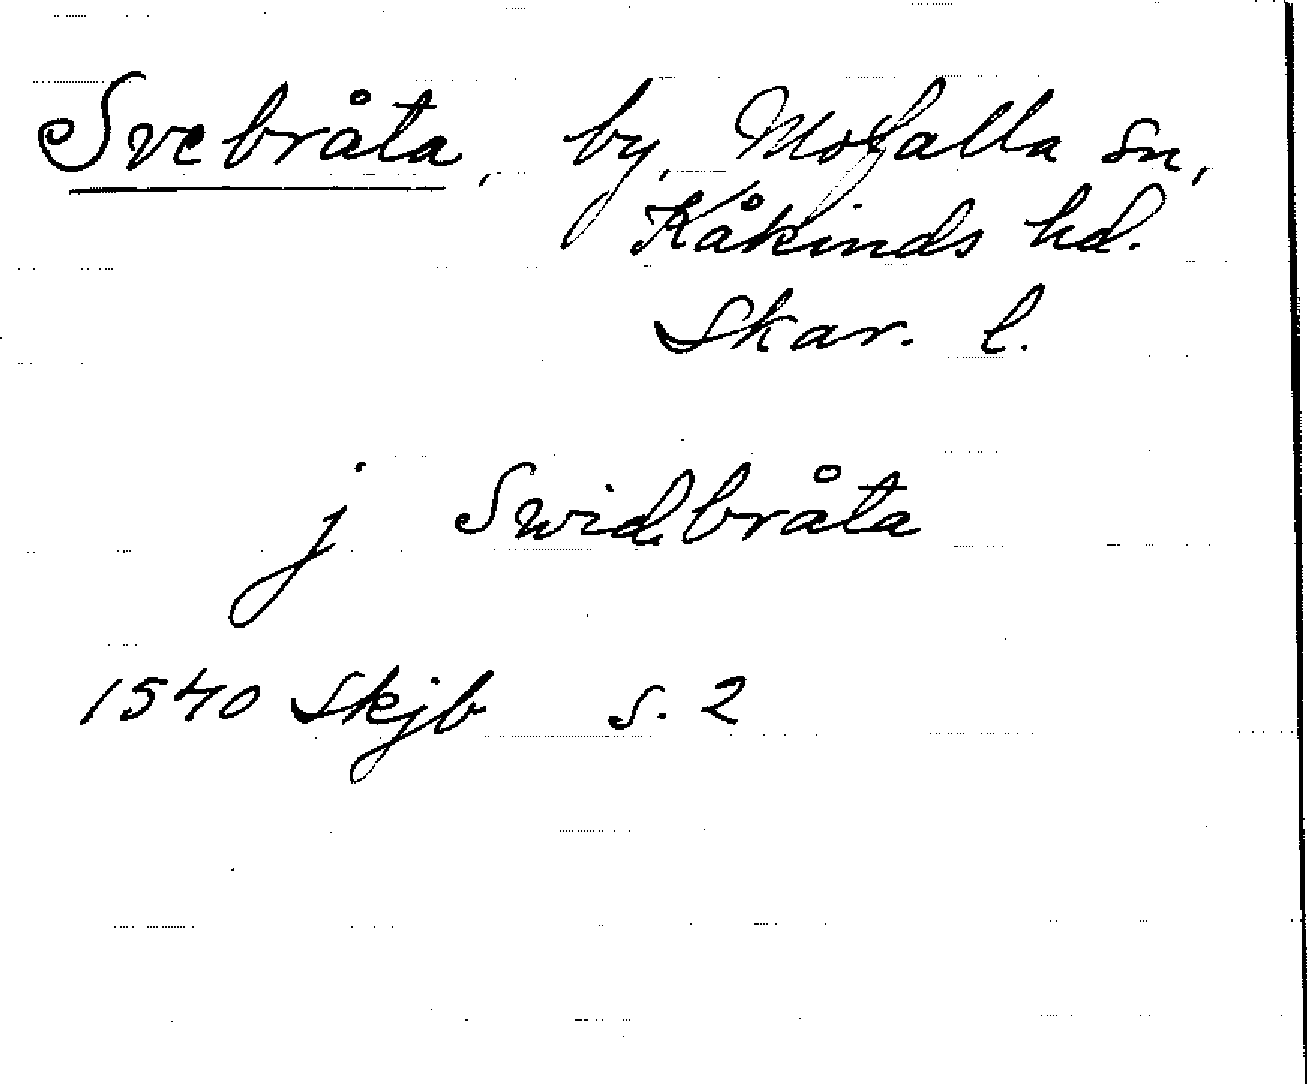 Svebråta, by, Mofalla sn,
Kåkinds hd.
Skar. l.
j Swidbråta
1540 Skjb s. 2